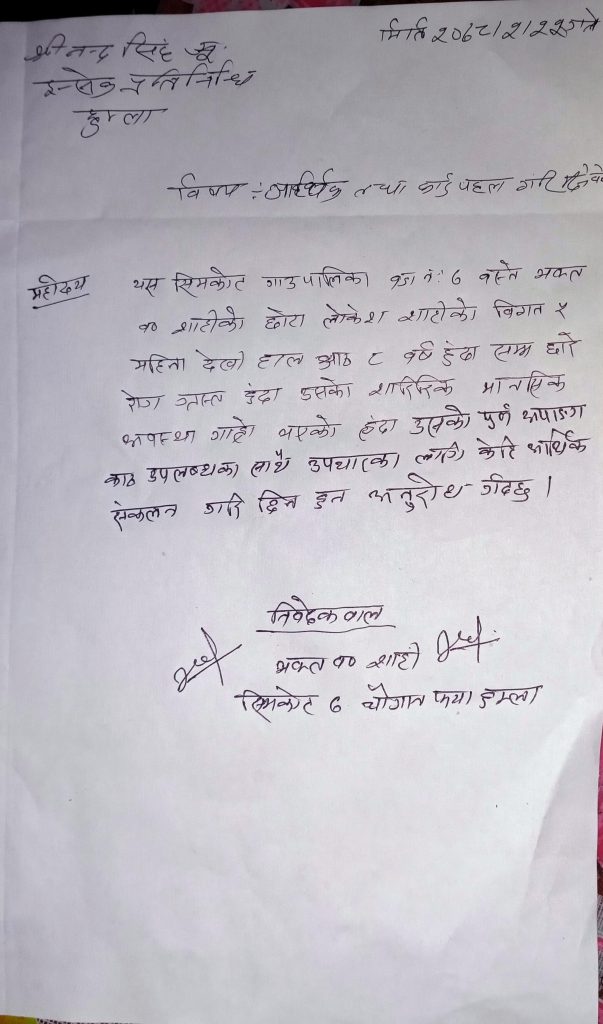 श्री नन्द्र सिंह ज्यू
इन्सेक प्रतिनिधि
हुम्ला
मिति २०७८।२।२२ गते
विषय :- आर्थिक तथा कार्ड पहल गरि
महोदय यस सिमकोट गाउपालिका वडा नं: ७ बस्ने भक्त
ब० शाहीको छोरा लोकेश शाहीको विगत ५
महिना देखी हाल आठ ८ वर्ष हुंदा सम्म छारे
रोग ग्रास्त हुंदा उसको शारिरिक मानसिक
अवस्था गाह्रो भएको हुंदा उसको पुर्ण अपाङग
काड उपलब्धका साथै उपचारका लागी केहि आर्थिक
संकलन गरि दिन हुन अनुरोध गर्दछु ।
निवेदकवाल
भक्त ब० शाही
सिमकोट ७ चौगान फया हुम्ला